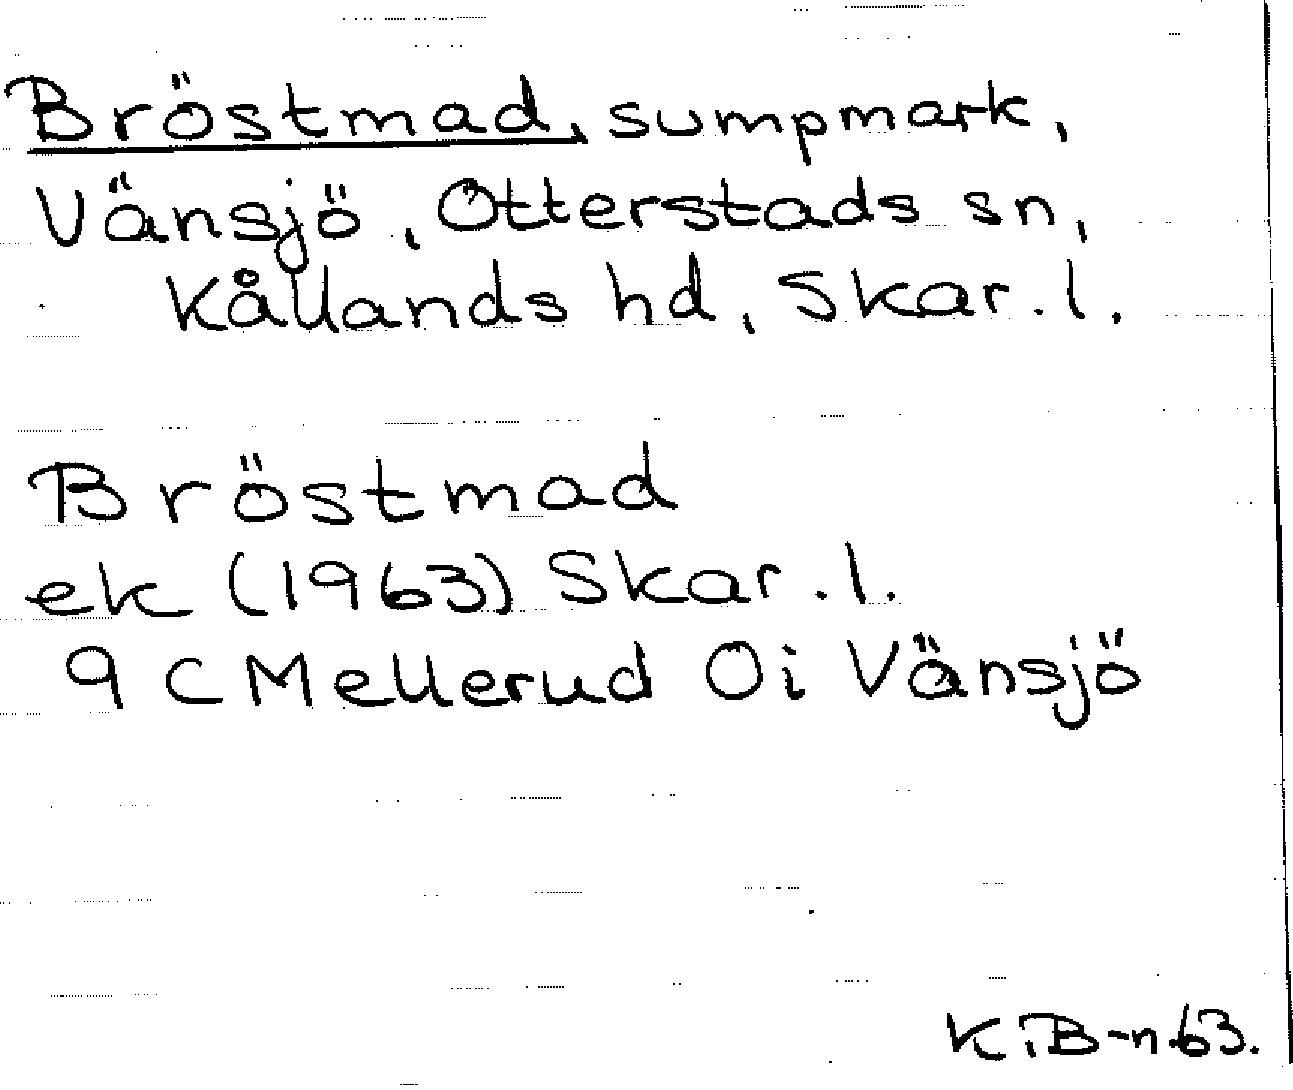 Bröstmad, sumpmark,
Vänsjö, Otterstads sn,
Kållands hd, Skar. l.
Bröstmad
ek (1963) Skar. l.
9 C Mellerud Oi Vänsjö
K.B-n 63.